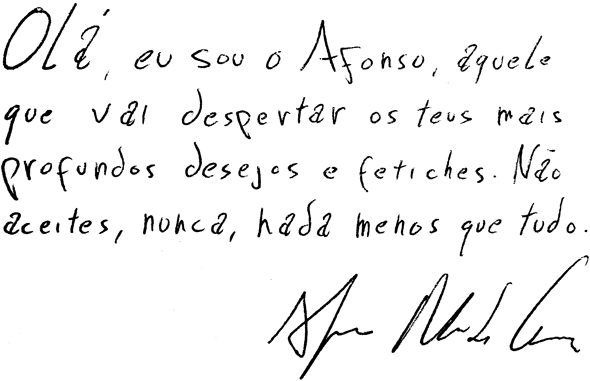 Olá, eu sou o Afonso, aquele
que vai despertar os teus mais
profundos desejos e fetiches. Não
aceites, nunca, nada menos que tudo.